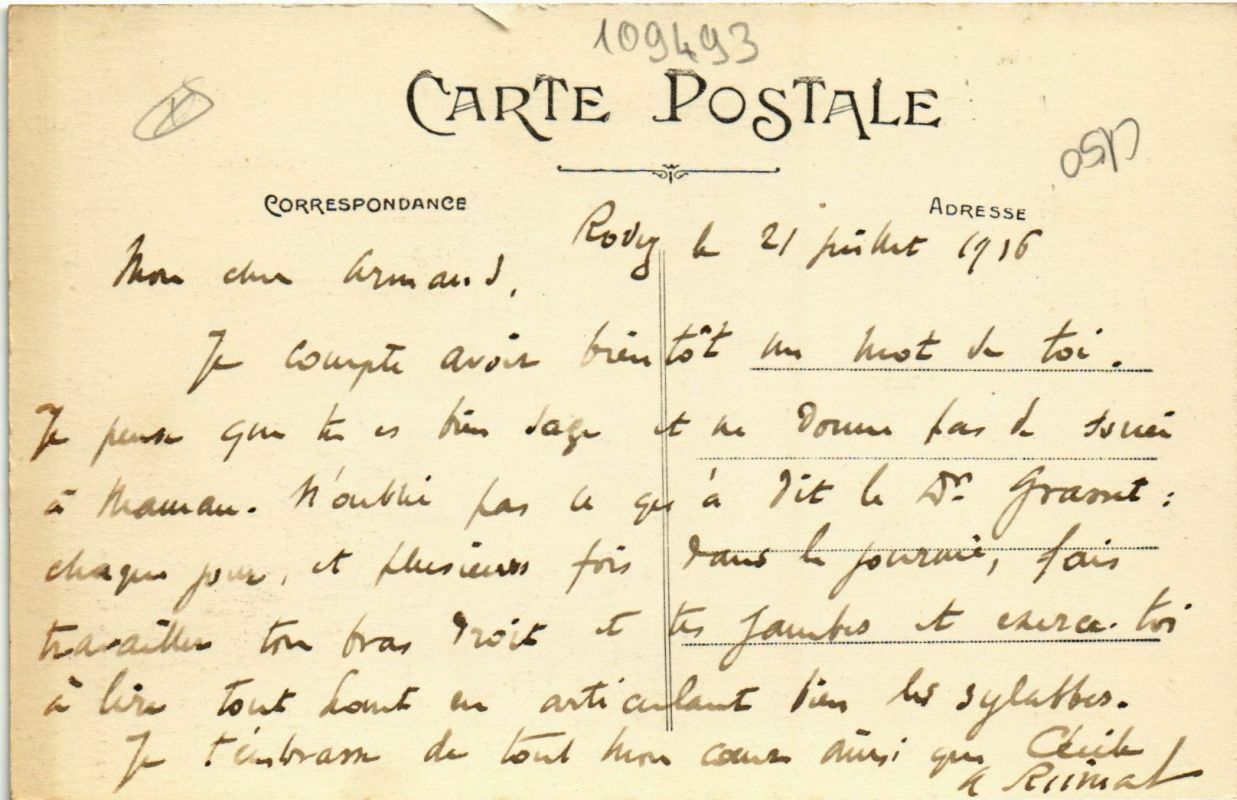 109493
CARTE POSTALE
CORRESPONDANCE
ADRESSE
le 21 juillet 1916
Mon cher Armand,
Je compte avoir bientôt un mot de toi.
Je pense que tu es bien sage et ne donne pas de souci
à Maman. N'oublie pas ce qu'à dit le Dr. Grasset :
chaque jour, et plusieurs fois dans la journée, fais
travailler ton bras droit et tes jambes et exerce-toi
à lire tout haut en articulant bien les sylabbes.
Je t'embrasse de tout mon cœur ainsi que Cécile